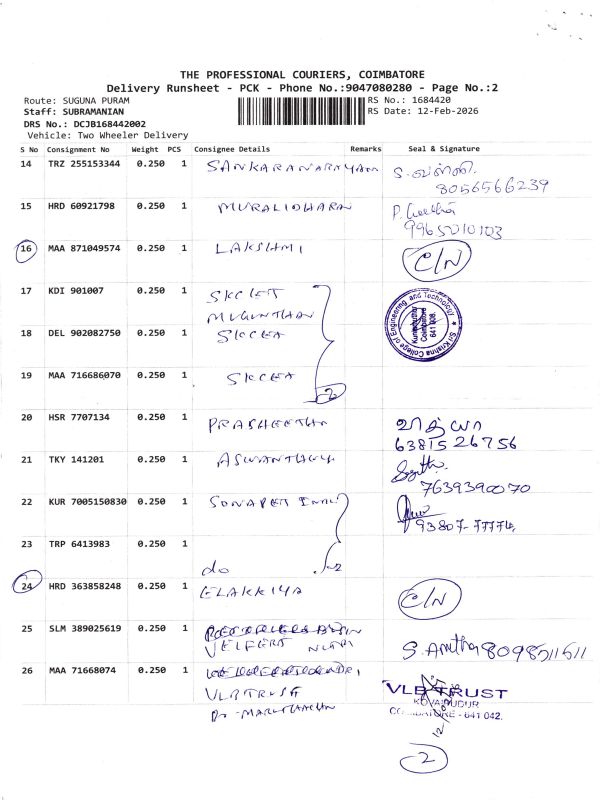 THE PROFESSIONAL COURIERS, COIMBATORE
Delivery Runsheet - PCK - Phone No.:9047080280 - Page No.:2
Route: SUGUNA PURAM RS No.: 1684420
Staff: SUBRAMANIAN RS Date: 12-Feb-2026
DRS No.: DCJB168442002
Vehicle: Two Wheeler Delivery
S No Consignment No Weight PCS Consignee Details Remarks Seal & Signature
14 TRZ 255153344 0.250 1 SANKARANARAYANAN S. வள்ளி
8056566239
15 HRD 60921798 0.250 1 MURALIDHARAN P. Geetha
9965010103
16 MAA 871049574 0.250 1 LAKSHMI C/N
17 KDI 901007 0.250 1 SKCET
MUGUNTHAN
Sri Krishna College of Engineering and Technology
Kuniamuthur
Coimbatore
641 008.
18 DEL 902082750 0.250 1 SKCEA
19 MAA 716686070 0.250 1 SKCEA
2
20 HSR 7707134 0.250 1 PRASHEETHA
6381526756
21 TKY 141201 0.250 1 ASWANTHGY
7639390070
22 KUR 7005150830 0.250 1 SONAPET
93807-77774
23 TRP 6413983 0.250 1 do 2
24 HRD 363858248 0.250 1 ELAKKIYA C/N
25 SLM 389025619 0.250 1
S. Amtha 8098511511
26 MAA 71668074 0.250 1
VLB TRUST
VLB TRUST
KOVAIPUDUR
COIMBATORE - 641 042.
2